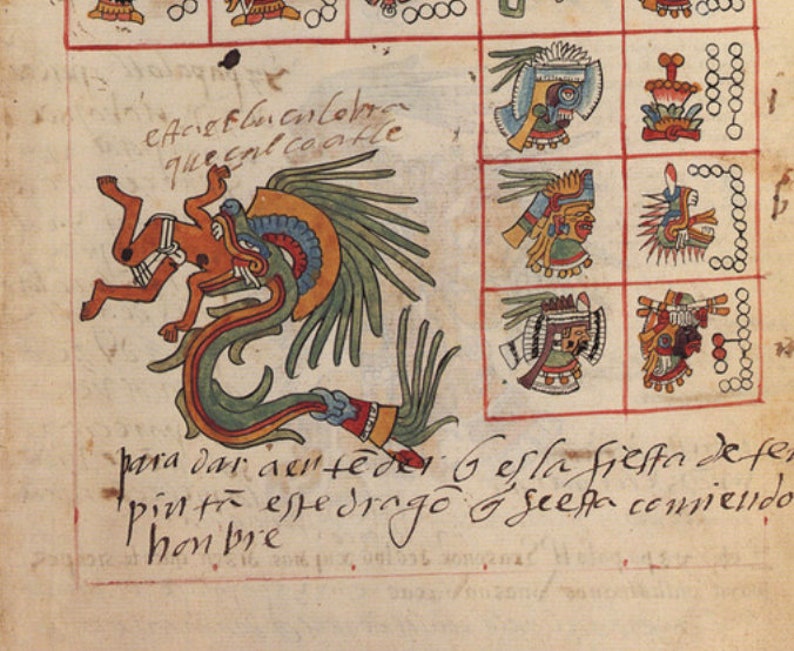 esta es la culebra
queçalcoatle
para dar a entēder q̃ es la fiesta de te
pintā este dragō q̃ se esta comiendo
honbre